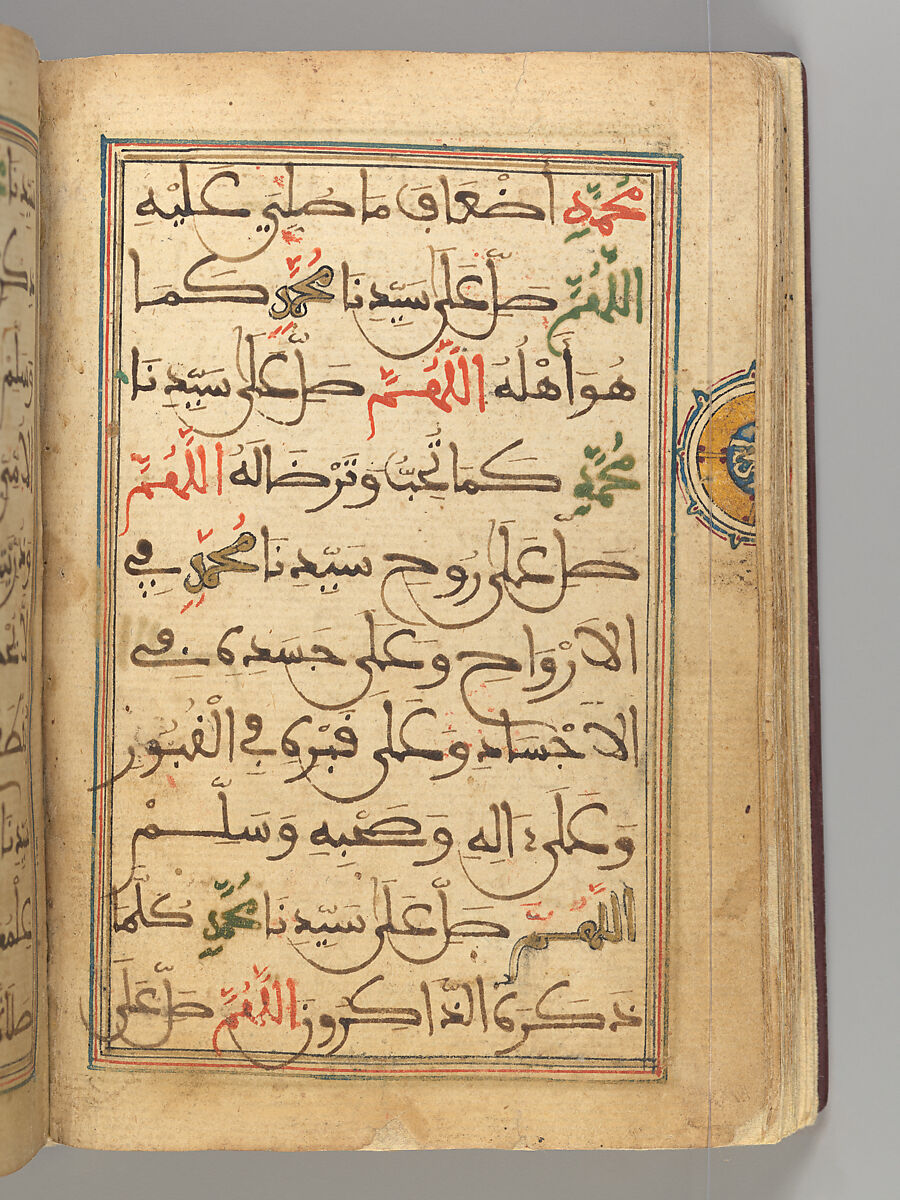 مُحَمَّدٍ أَضْعَافَ مَا صُلِّيَ عَلَيْهِ
اللَّهُمَّ صَلِّ عَلَى سَيِّدِنَا مُحَمَّدٍ كَمَا
هُوَ أَهْلُهُ اللَّهُمَّ صَلِّ عَلَى سَيِّدِنَا
مُحَمَّدٍ كَمَا تُحِبُّ وَتَرْضَا لَهُ اللَّهُمَّ
صَلِّ عَلَى رُوحِ سَيِّدِنَا مُحَمَّدٍ فِي
الاَرْوَاحِ وَعَلَى جَسَدِهِ فِي
الاَجْسَادِ وَعَلَى قَبْرِهِ فِي الْقُبُورِ
وَعَلَى ءَالِهِ وَصَحْبِهِ وَسَلِّمْ
اللَّهُمَّ صَلِّ عَلَى سَيِّدِنَا مُحَمَّدٍ كُلَّمَا
ذَكَرَهُ الذَّاكِرُونَ اللَّهُمَّ صَلِّ عَلَى